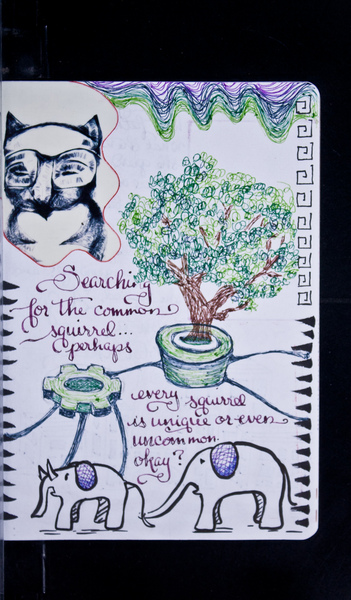 Searching
for the common
squirrel...
perhaps
every squirrel
is unique or even
uncommon.
okay?